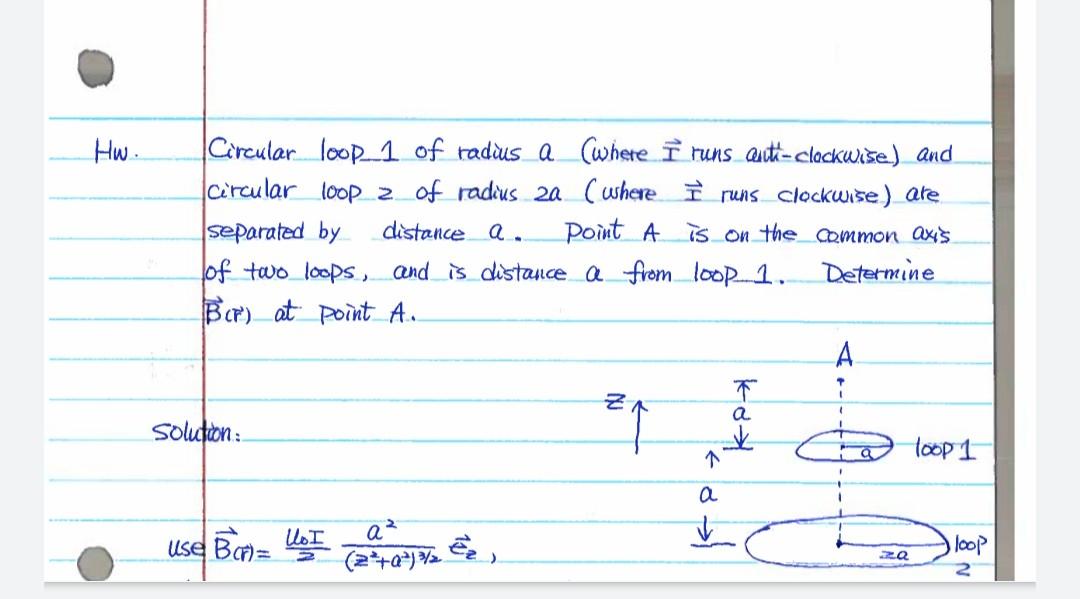 Hw. Circular loop 1 of radius a (where I⃗ runs anti-clockwise) and
circular loop 2 of radius 2a (where I⃗ runs clockwise) are
separated by distance a. Point A is on the common axis
of two loops, and is distance a from loop 1. Determine
B⃗(r⃗) at point A.
A
z
a
solution:
a loop 1
a
use B⃗(r⃗) = μ₀I/2 a²/(z²+a²)^3/2 e⃗z,
2a loop
2